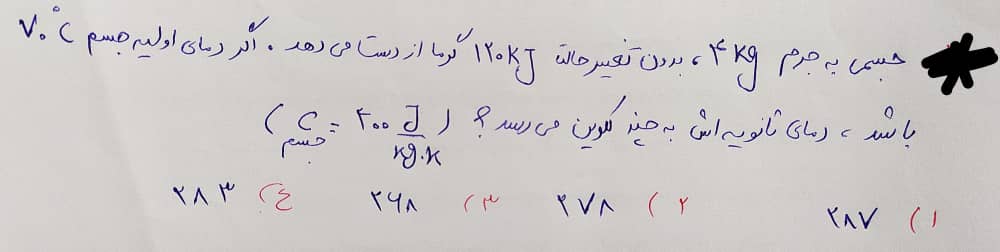 جسمی به جرم ۴kg، بدون تغییر حالت ۱۲۰kJ گرما از دست می دهد. اگر دمای اولیه جسم ۷۰°C
باشد، دمای ثانویه اش به چند کلوین می رسد؟ (C جسم = ۴۰۰ J/kg.K)
۱) ۲۸۷ ۲) ۲۷۸ ۳) ۲۶۸ ۴) ۲۸۳